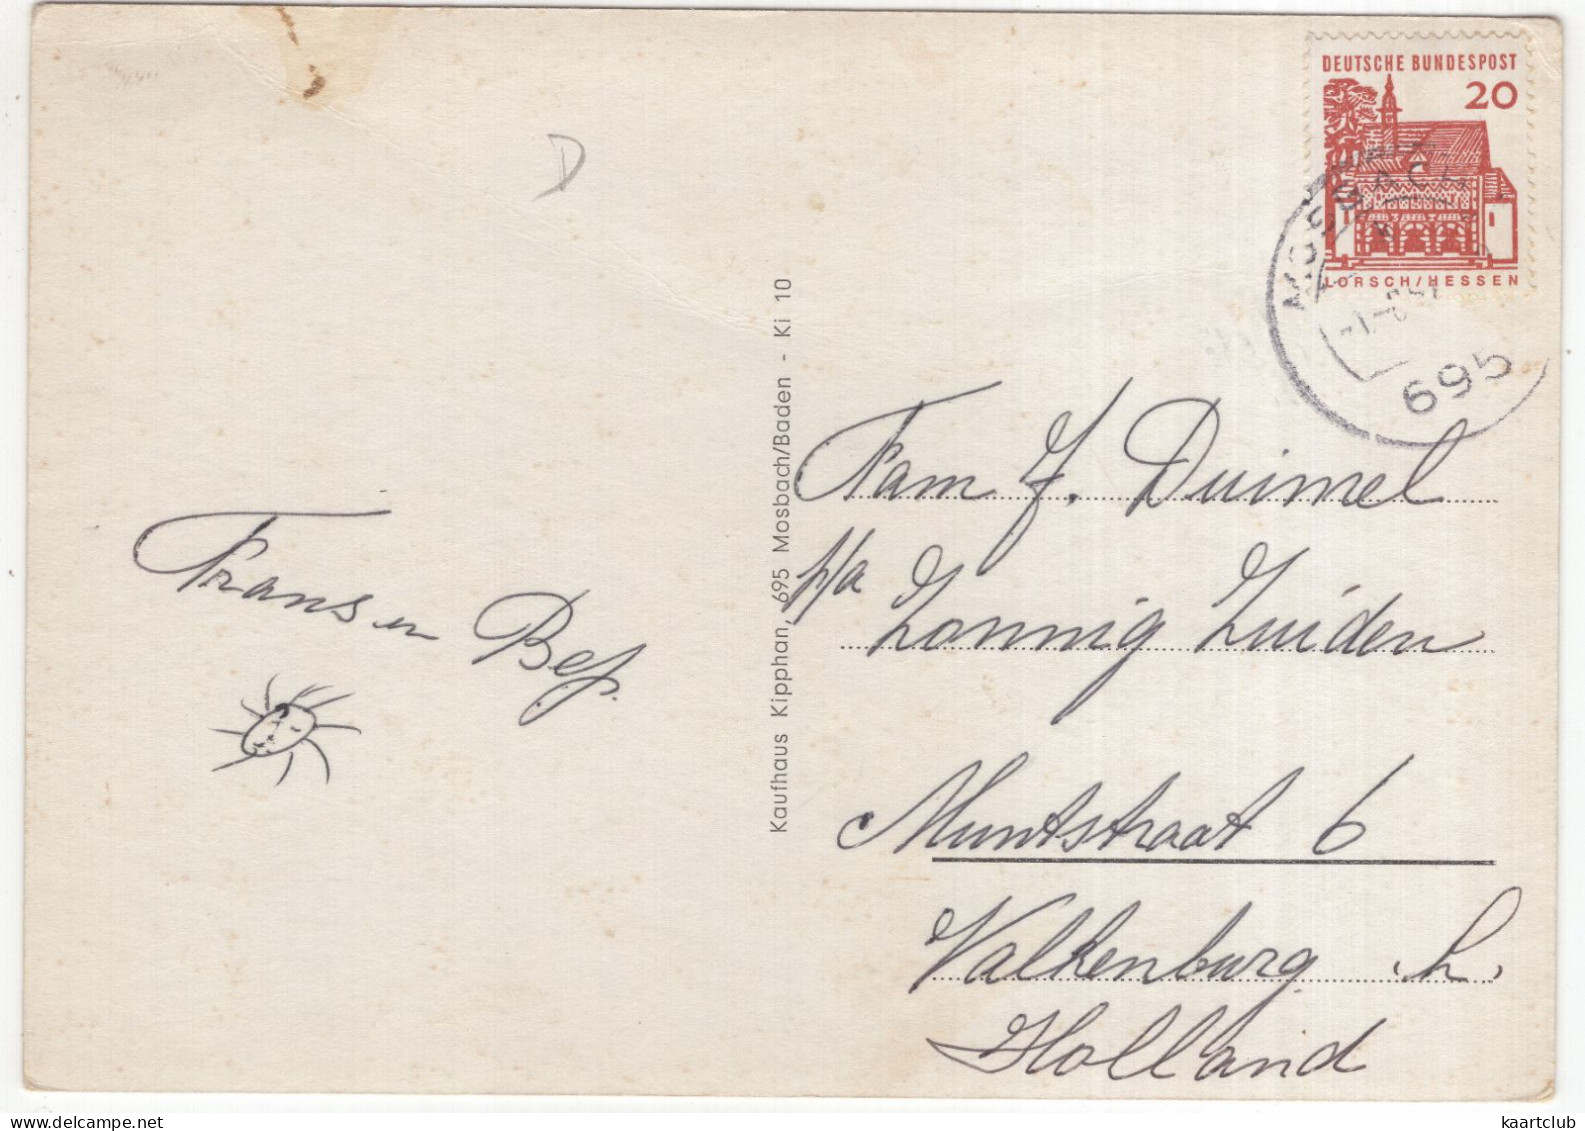 D
DEUTSCHE BUNDESPOST
20
LORSCH/HESSEN
695
Kaufhaus Kipphan, 695 Mosbach/Baden - Ki 10
Frans en Bep.
Fam J. Duimel
p/a Zonnig Zuiden
Muntstraat 6
Valkenburg L.
Holland
kaartclub